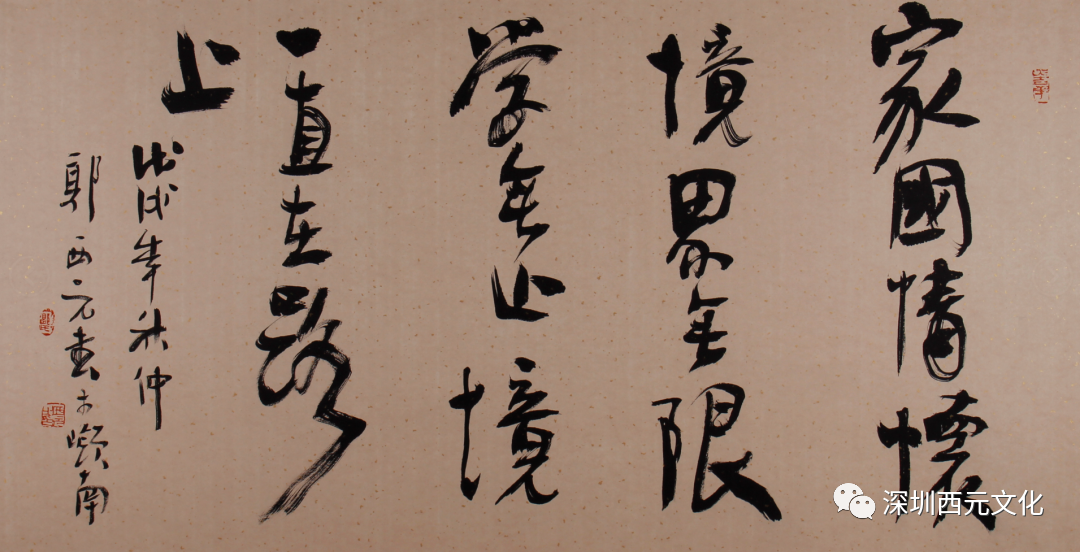 家國情懷
境界無限
学無止境
一直在路
上
戊戌年秋仲
郭西元書於嶺南
深圳西元文化